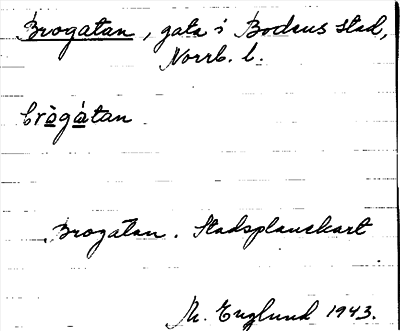 Brogatan, gata i Bodens stad,
Norrb. l.
bròga̱tan
Brogatan. Stadsplanekart
M. Englund 1943.